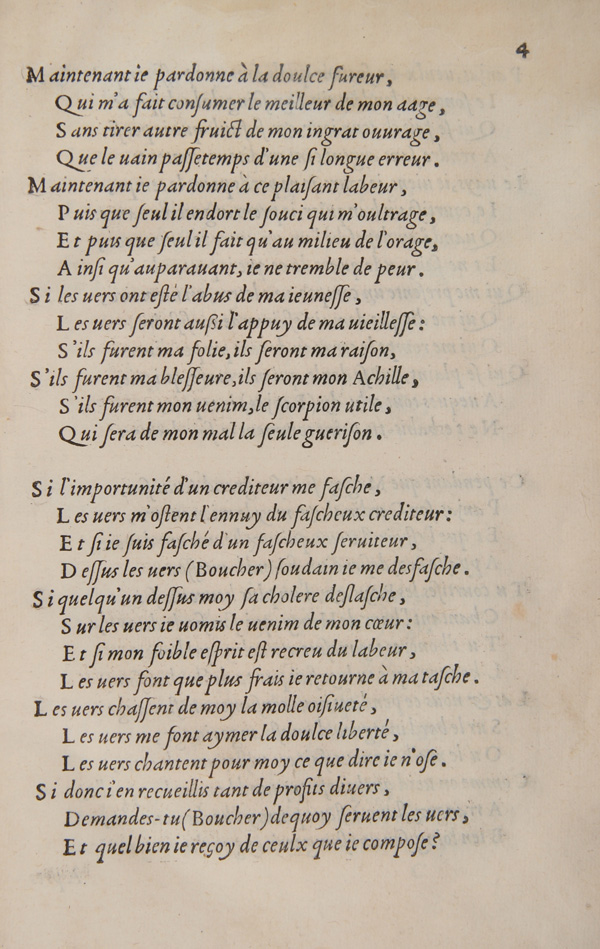 4
Maintenant ie pardonne à la doulce fureur,
Qui m'a fait conſumer le meilleur de mon aage,
Sans tirer autre fruict de mon ingrat ouurage,
Que le uain paſſetemps d'une ſi longue erreur.
Maintenant ie pardonne à ce plaiſant labeur,
Puis que ſeul il endort le ſouci qui m'oultrage,
Et puis que ſeul il fait qu'au milieu de l'orage,
Ainſi qu'auparauant, ie ne tremble de peur.
Si les uers ont eſté l'abus de ma ieuneſſe,
Les uers ſeront außi l'appuy de ma uieilleſſe:
S'ils furent ma folie, ils ſeront ma raiſon,
S'ils furent ma bleſſeure, ils ſeront mon Achille,
S'ils furent mon uenim, le ſcorpion utile,
Qui ſera de mon mal la ſeule gueriſon.
Si l'importunité d'un crediteur me faſche,
Les uers m'oſtent l'ennuy du faſcheux crediteur:
Et ſi ie ſuis faſché d'un faſcheux ſeruiteur,
Deſſus les uers (Boucher) ſoudain ie me desfaſche.
Si quelqu'un deſſus moy ſa cholere deſlaſche,
Sur les uers ie uomis le uenim de mon cœur:
Et ſi mon foible eſprit eſt recreu du labeur,
Les uers font que plus frais ie retourne à ma taſche.
Les uers chaſſent de moy la molle oiſiueté,
Les uers me font aymer la doulce liberté,
Les uers chantent pour moy ce que dire ie n'oſe.
Si donc i'en recueillis tant de profits diuers,
Demandes-tu (Boucher) dequoy ſeruent les uers,
Et quel bien ie reçoy de ceulx que ie compoſe?